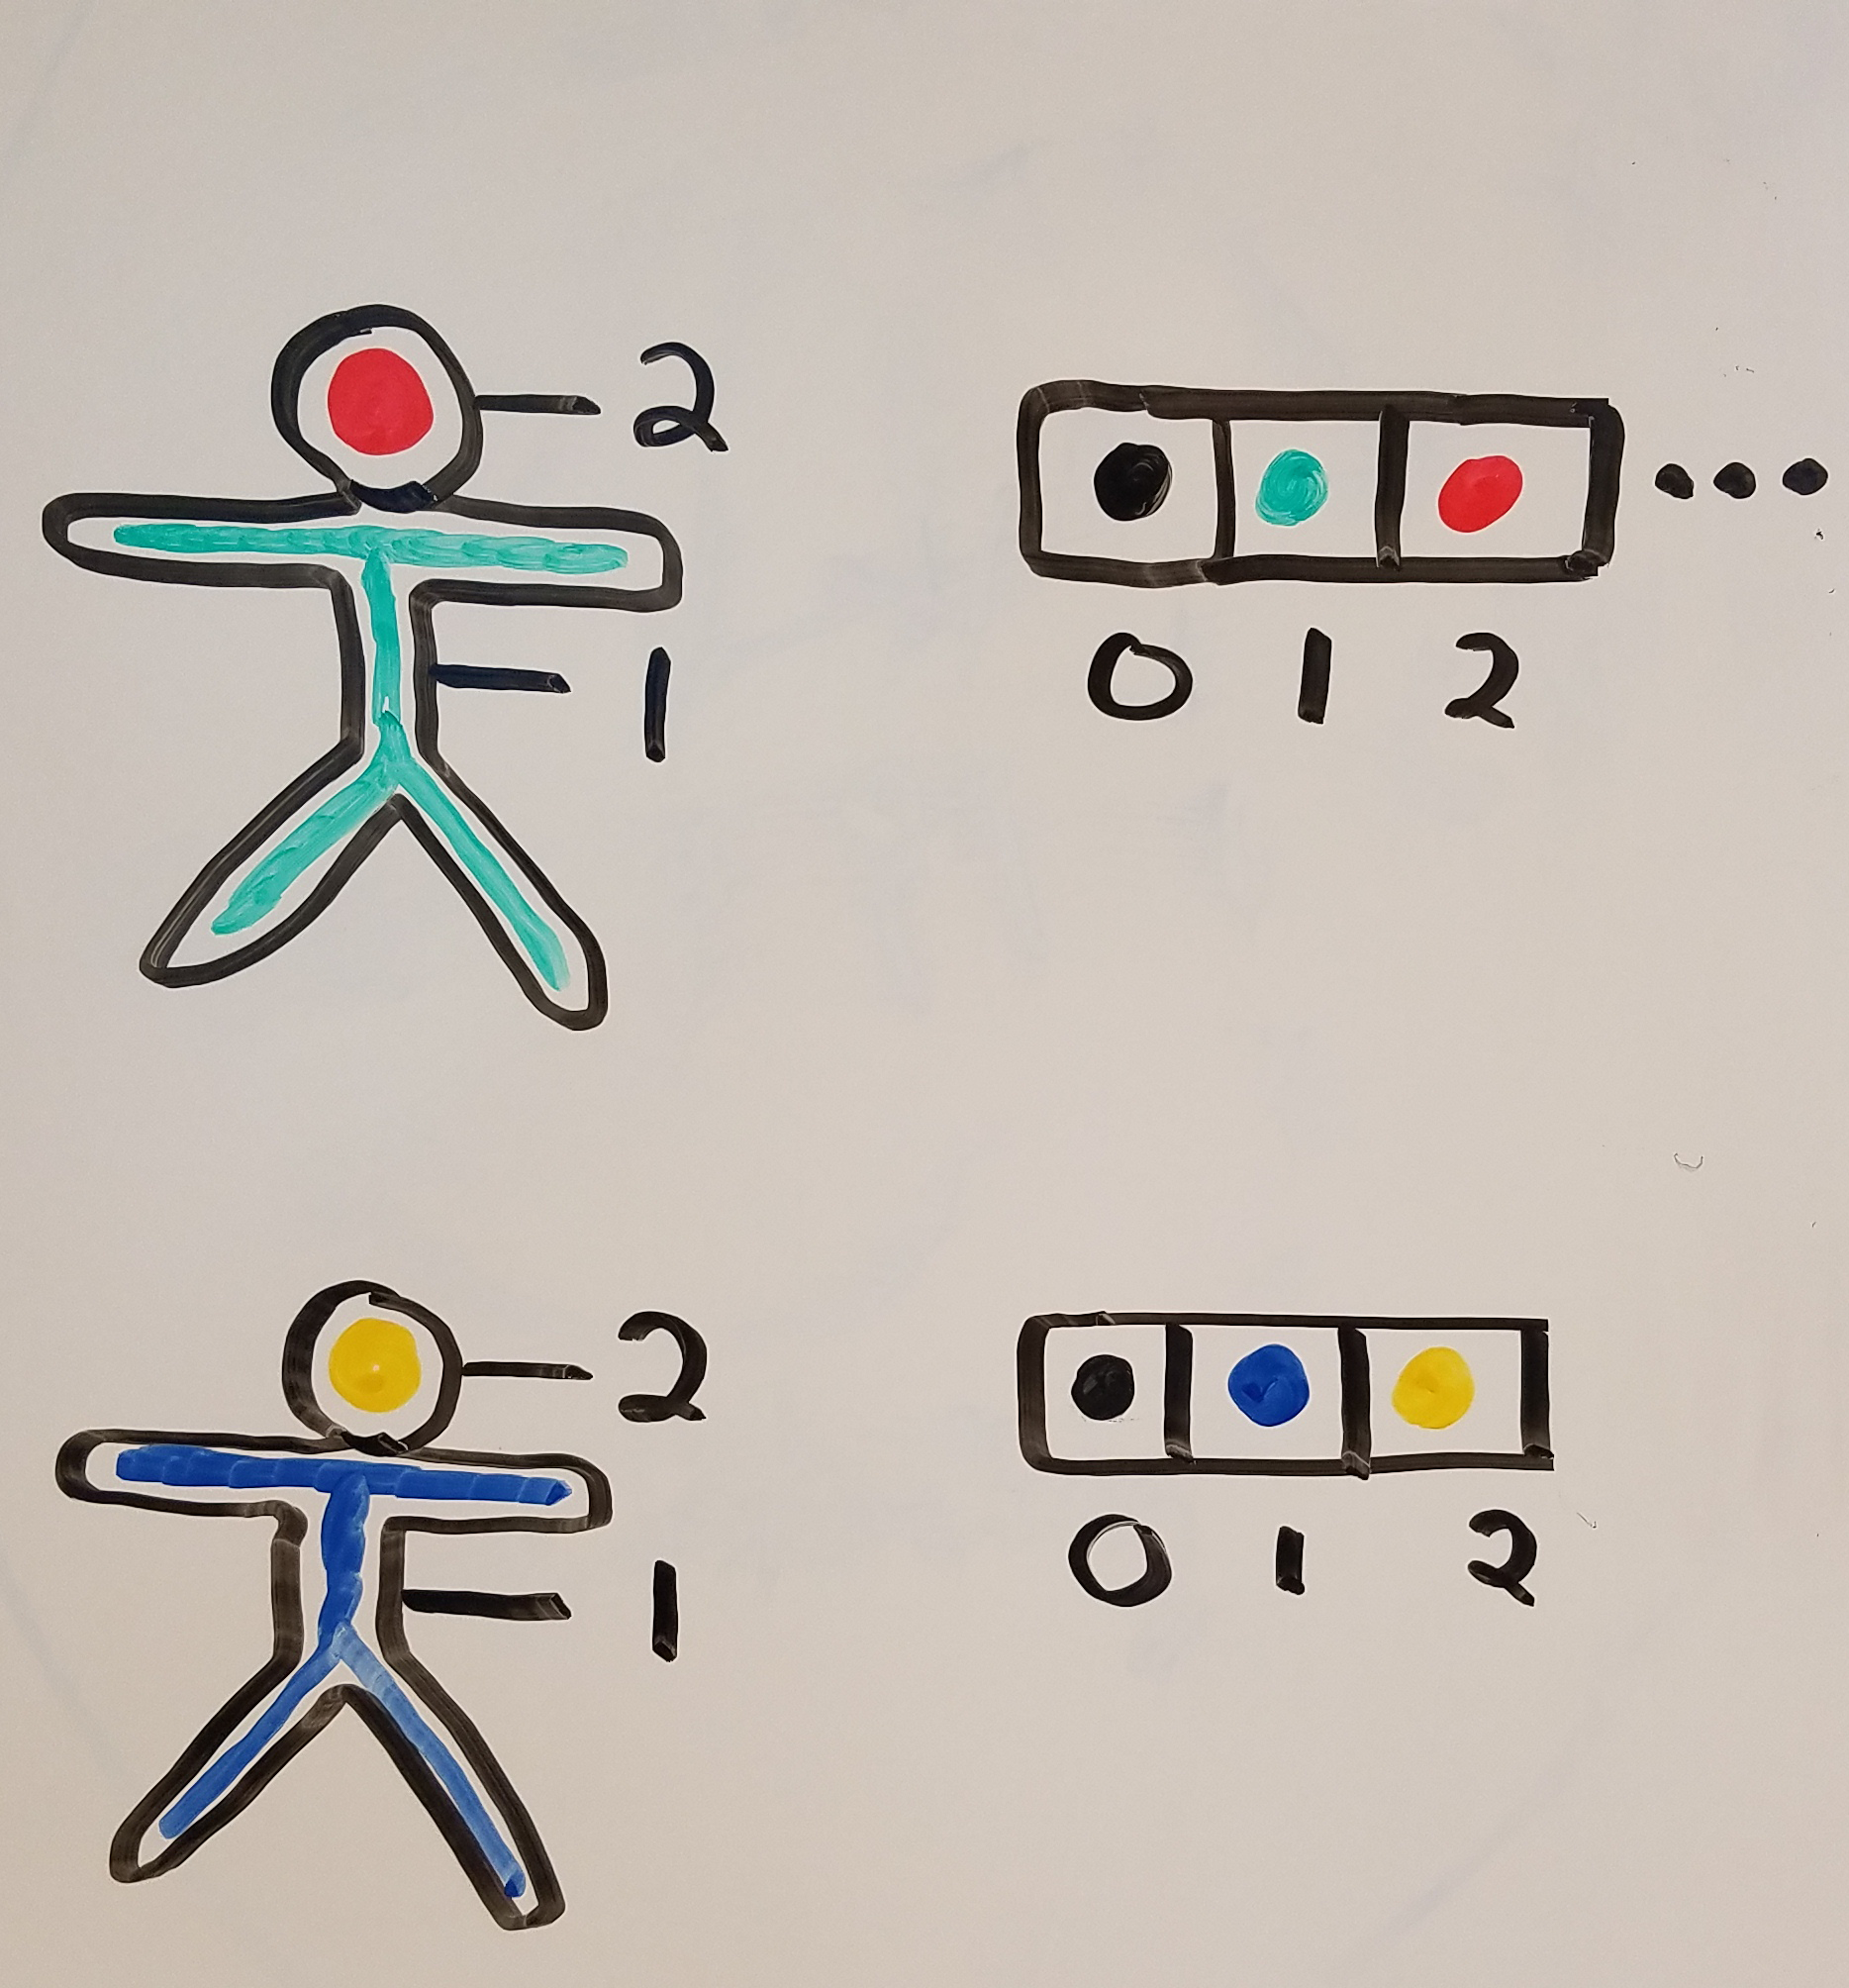 2
1
0 1 2
2
1
0 1 2